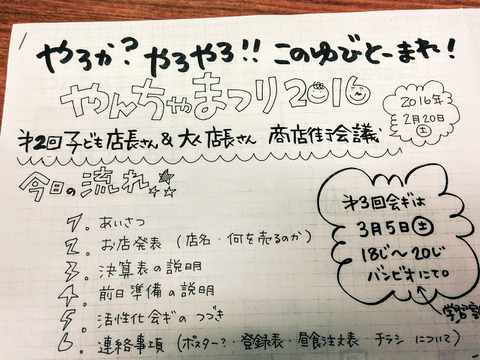 やろか?やろやろ!!このゆびとーまれ!
やんちゃまつり2016
2016年
2月20日
土
才2回子ども店長さん&大人店長さん 商店街会議
今日の流れ
1. あいさつ
2. お店発表 (店名・何を売るのか)
3. 決算表の説明
4. 前日準備の説明
5. 活性化会ギのつづき
6. 連絡事項 (ポスター?・登録表・昼食注文表・チラシについて)
才3回会ギは
3月5日土
18じ〜20じ
バンビオにて。
学習室